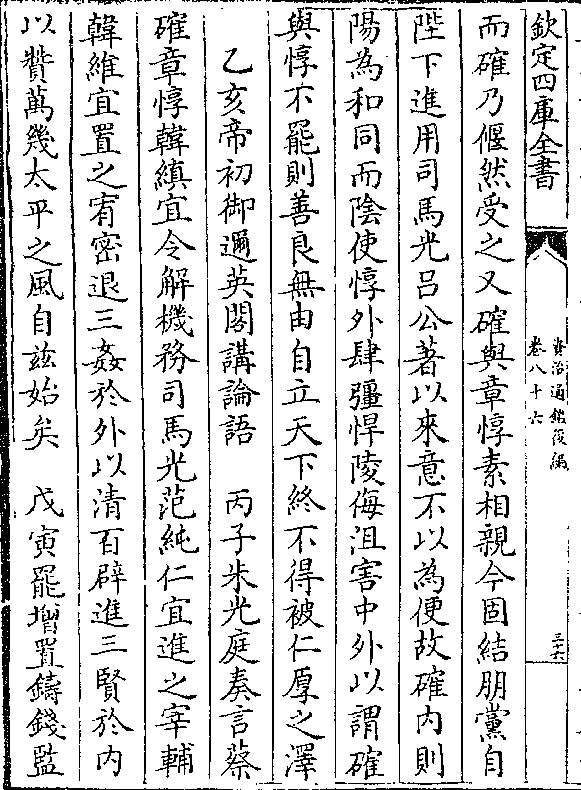 欽定四庫全書
資治通鑑後編
卷八十六
三六
而確乃偃然受之又確與章惇素相親今固結朋黨自
陛下進用司馬光呂公著以來意不以為便故確内則
陽為和同而陰使惇外肆彊悍陵侮沮害中外以謂確
與惇不罷則善良無由自立天下終不得被仁厚之澤
乙亥帝初御邇英閣講論語　丙子朱光庭奏言蔡
確章惇韓縝宜令解機務司馬光范純仁宜進之宰輔
韓維宜置之宥密退三姦於外以清百辟進三賢於内
以贊萬幾太平之風自兹始矣　戊寅罷增置鑄錢監